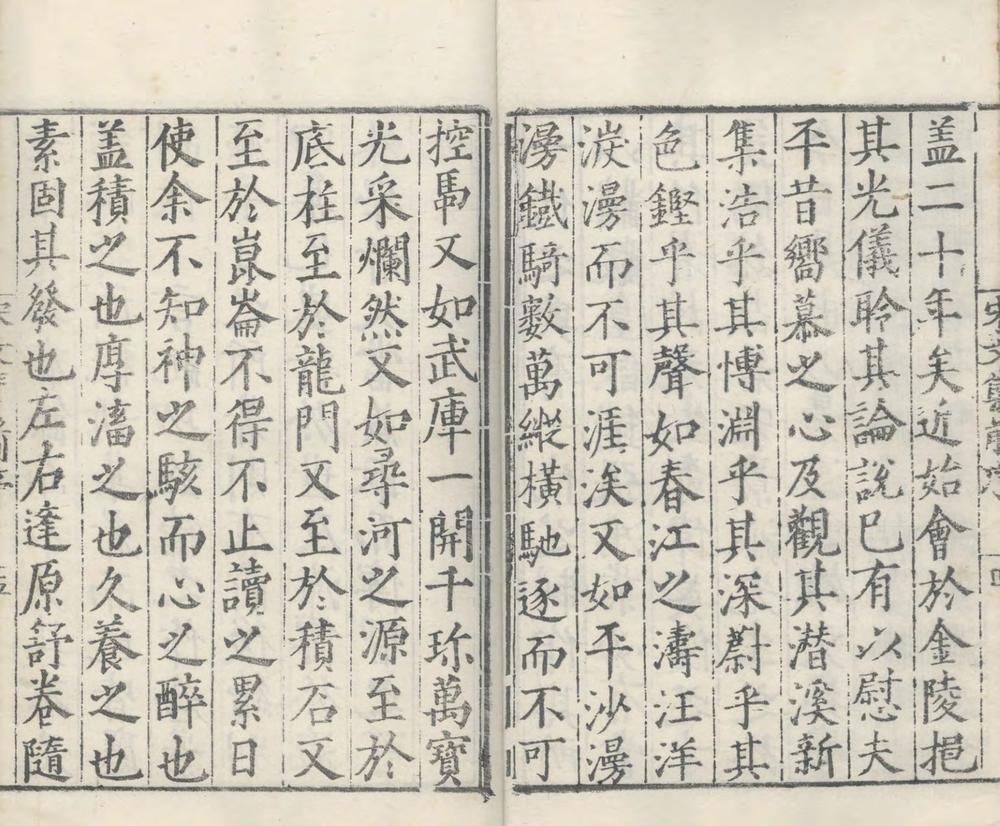 盖二十年矣近始會於金陵挹
其光儀聆其論說已有以慰夫
平昔嚮慕之心及觀其潜溪新
集浩乎其博淵乎其深蔚乎其
色鏗乎其聲如春江之濤汪洋
漫而不可涯涘又如平沙漫
漫鐵騎數萬縱橫馳逐而不可
控馬又如武庫一開千珎萬寶
光采爛然又如尋河之源至於
底柱至於龍門又至於積石又
至於崑崙不得不止讀之累日
使余不知神之駭而心之醉也
盖積之也厚濇之也久養之也
素固其發也左右逢原舒卷隨